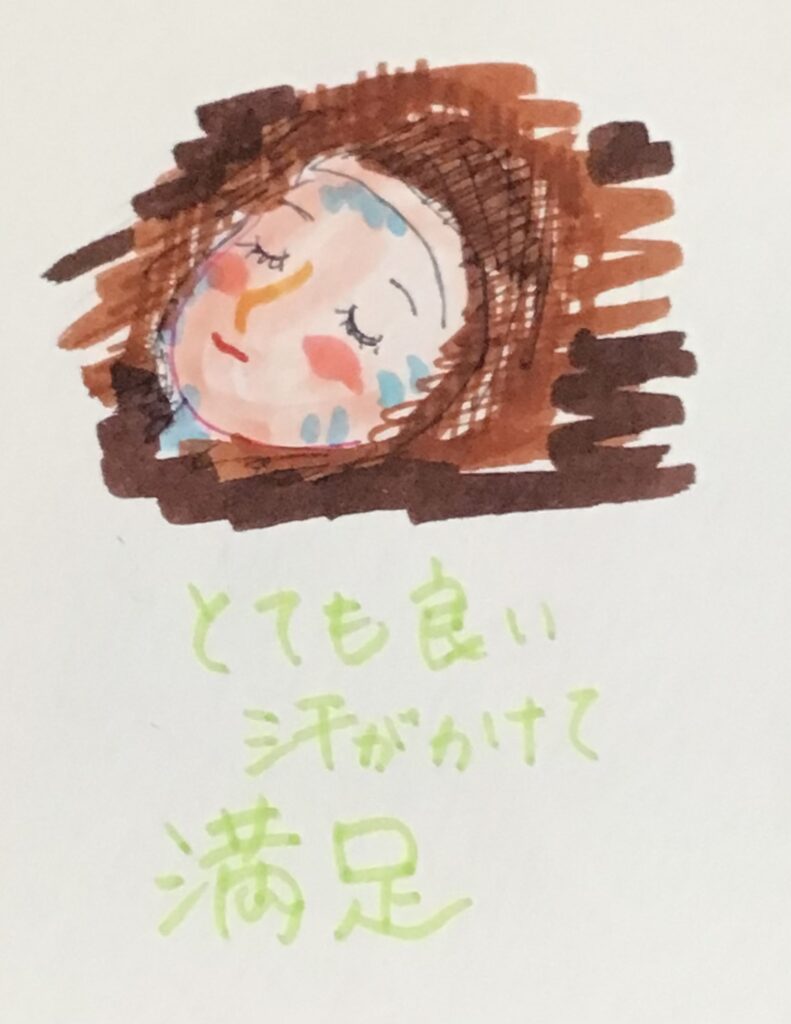 とても良い
汗がかけて
満足